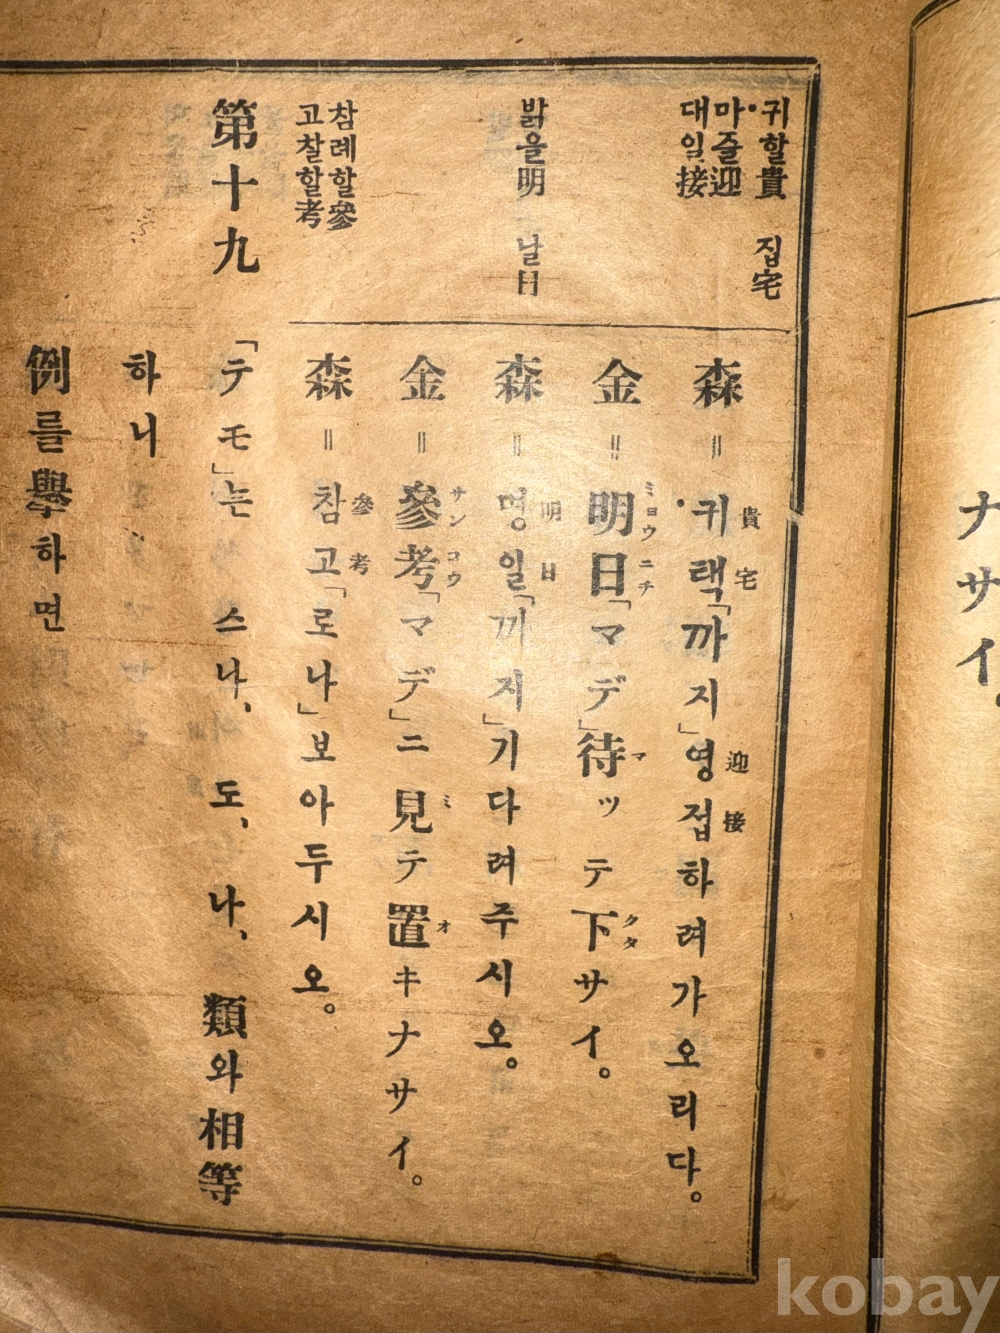 귀할貴 집宅
마즐迎
대일接
밝을明 날日
참례할參
고찰할考
森=귀택「까지」영접하려가오리다。
貴宅 迎接
金=明日「マデ」待ッテ下サイ。
ミョウニチ マ クダ
森=명일「까지」기다려주시오。
明日
金=參考「マデ」ニ見テ置キナサイ。
サンコウ ミ オ
森=참고「로나」보아두시오。
參考
第十九
「テモ」는 스나、도、나、類와相等
하니
例를擧하면
ナサイ。
kobay